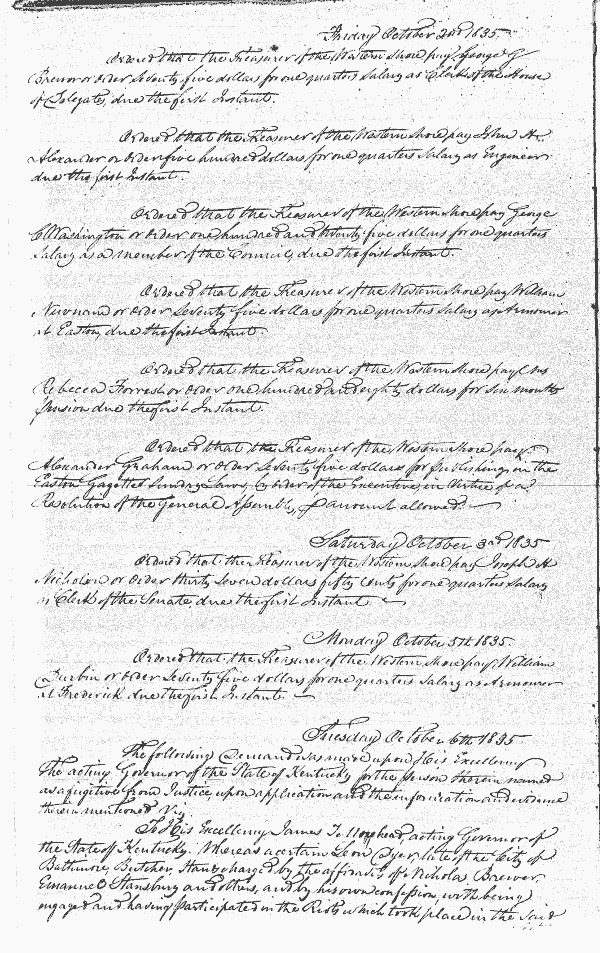 Friday October 2nd 1835.
Ordered that the Treasurer of the Western Shore pay George G
Brewer or order Seventy five dollars for one quarters Salary as Clerk of the House
of Delegates, due the first Instant.
Ordered that the Treasurer of the Western Shore pay John H.
Alexander or order five hundred dollars for one quarters Salary as Engineer
due the first Instant.
Ordered that the Treasurer of the Western Shore pay George
C Washington or order one hundred and twenty five dollars for one quarters
Salary as a member of the Council, due the first Instant.
Ordered that the Treasurer of the Western Shore pay William
Newnam or order Seventy five dollars for one quarters Salary as Armourer
at Easton, due the first Instant.
Ordered that the Treasurer of the Western Shore pay Mrs
Rebecca Forrest or order one hundred and eighty dollars for Six months
pension due the first Instant.
Ordered that the Treasurer of the Western Shore pay
Alexander Graham or order Seventy five dollars for publishing in the
Easton Gazette Sundry Laws, by order of the Executive, in Virtue of a
Resolution of the General Assembly, amount allowed.
Saturday October 3rd 1835
Ordered that the Treasurer of the Western Shore pay Joseph H
Nicholson or order thirty Seven dollars fifty Cents for one quarters Salary
as Clerk of the Senate, due the first Instant
Monday October 5th 1835.
Ordered that the Treasurer of the Western Shore pay William
Durbin or order Seventy five dollars for one quarters Salary as Armourer
at Frederick due the first Instant.
Tuesday October 6th 1835
The following Demand was made upon His Excellency
The acting Governor of the State of Kentucky for the person therein named
as a fugitive from Justice, upon application and the information and evidence
therein mentioned Viz
To His Excellency James T. Morehead, acting Governor of
the State of Kentucky. Whereas a certain Leon Dyer, late of the City of
Baltimore, Butcher, Stands charged by the affidavits of Nicholas Brewer,
Emanuel Stansbury and others, and by his own confession, with being
engaged and having participated in the Riots which took place in the Said